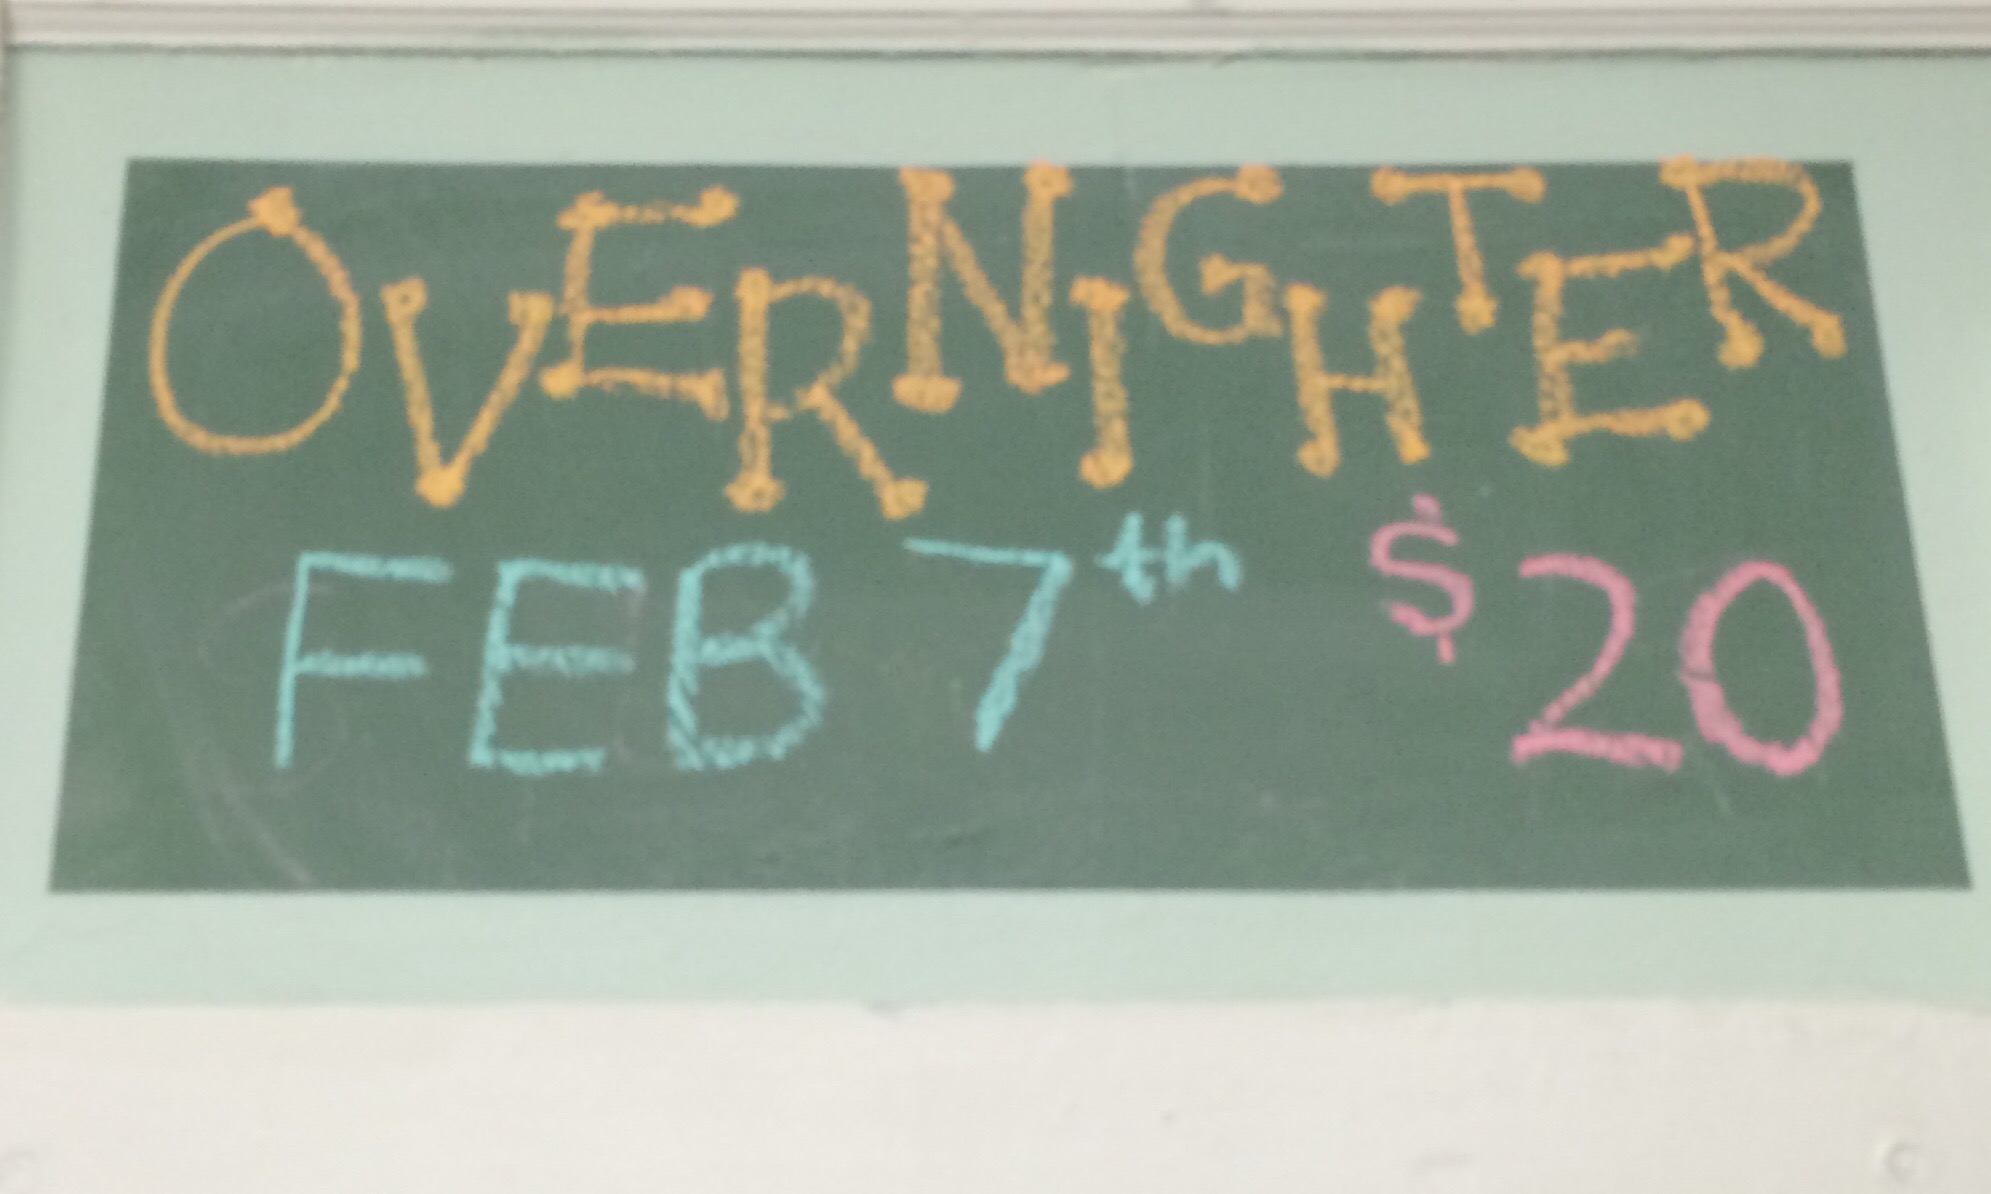 OVERNIGHTER
FEB 7th $20